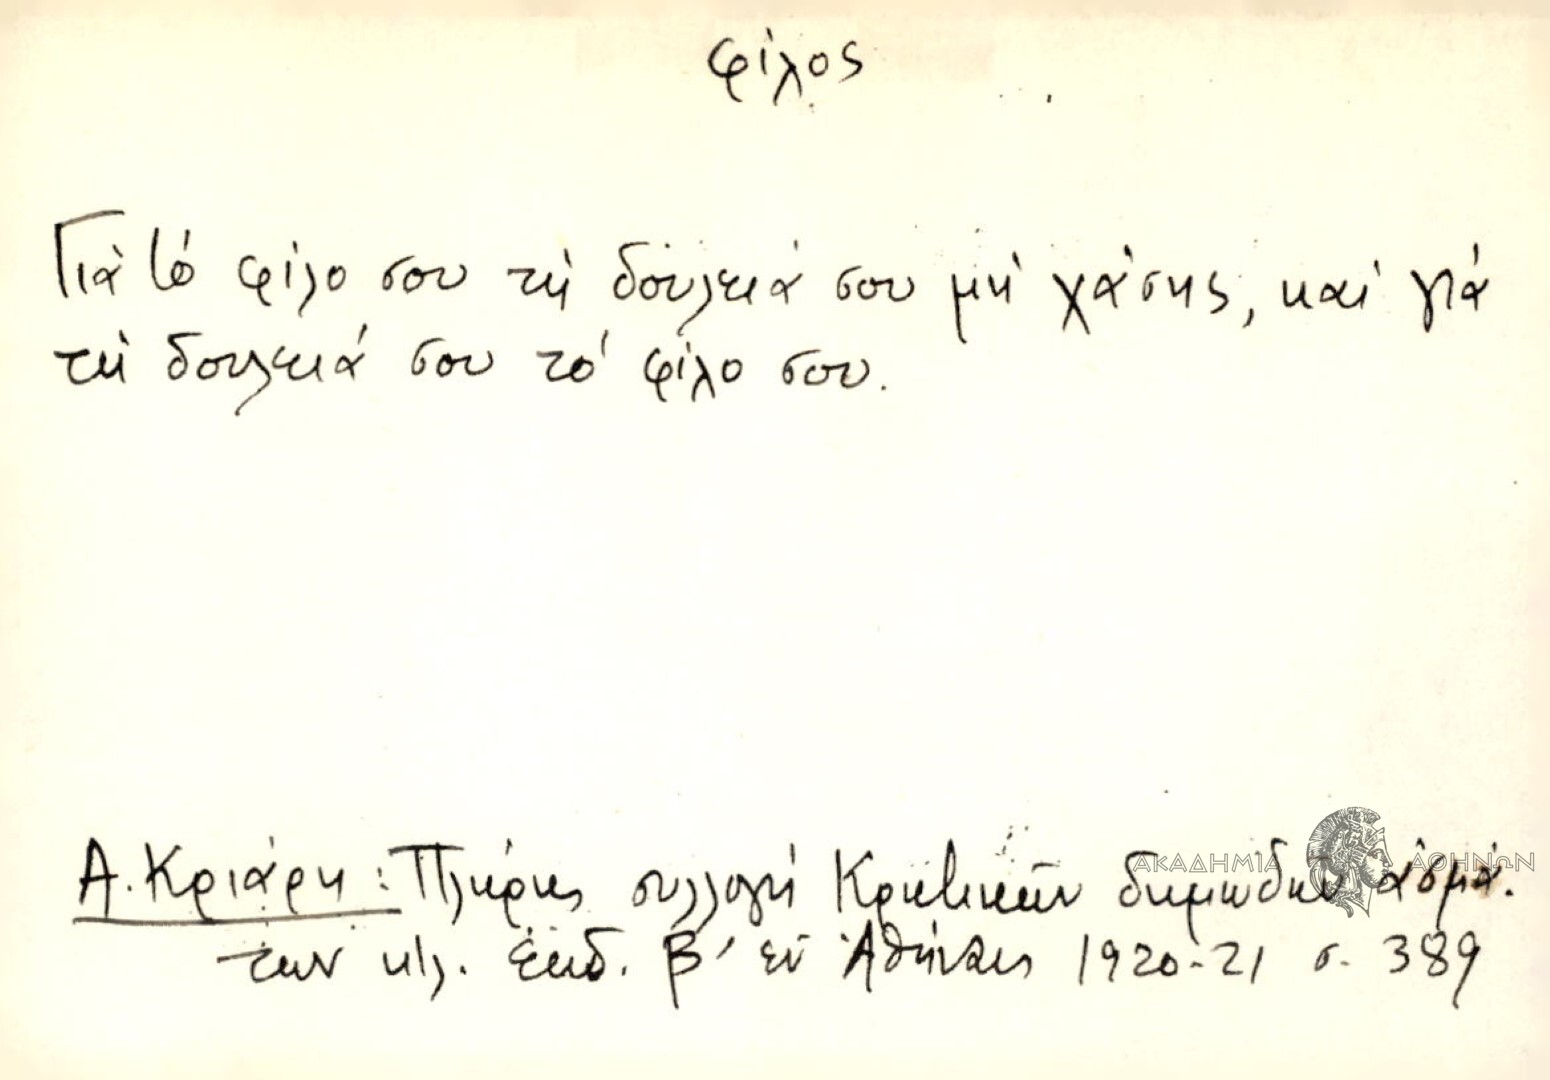 φίλος
Γιὰ τὸ φίλο σου τὴ δουλειά σου μὴ χάσης, καὶ γιὰ
τὴ δουλειά σου τὸ φίλο σου.
Α. Κριάρη: Πλήρης συλλογὴ Κρητικῶν δημωδῶν ᾀσμά-
των κλ. ἔκδ. β' ἐν Ἀθήναις 1920-21 σ. 389
ΑΚΑΔΗΜΙΑ ΑΘΗΝΩΝ